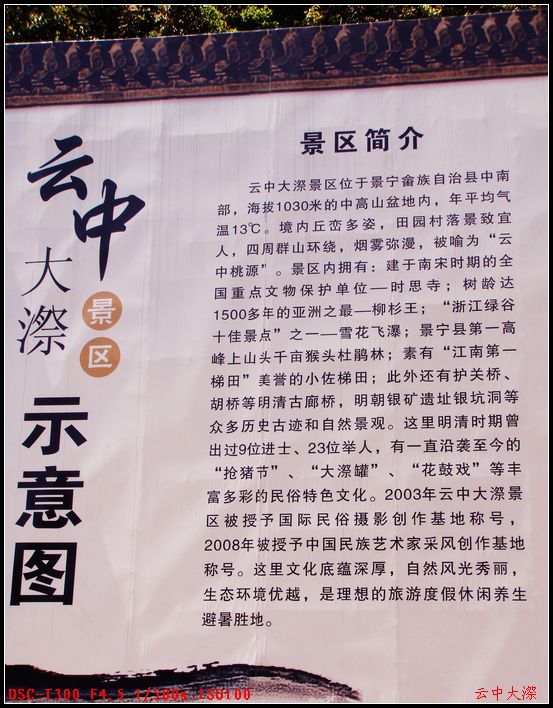 云中
大漈
景区
示意图
景区简介
云中大漈景区位于景宁畲族自治县中南
部，海拔1030米的中高山盆地内，年平均气
温13℃。境内丘峦多姿，田园村落景致宜
人，四周群山环绕，烟雾弥漫，被喻为“云
中桃源”。景区内拥有：建于南宋时期的全
国重点文物保护单位—时思寺；树龄达
1500多年的亚洲之最—柳杉王；“浙江绿谷
十佳景点”之一—雪花飞瀑；景宁县第一高
峰上山头千亩猴头杜鹃林；素有“江南第一
梯田”美誉的小佐梯田；此外还有护关桥、
胡桥等明清古廊桥，明朝银矿遗址银坑洞等
众多历史古迹和自然景观。这里明清时期曾
出过9位进士、23位举人，有一直沿袭至今的
“抢猪节”、“大漈罐”、“花鼓戏”等丰
富多彩的民俗特色文化。2003年云中大漈景
区被授予国际民俗摄影创作基地称号，
2008年被授予中国民族艺术家采风创作基地
称号。这里文化底蕴深厚，自然风光秀丽，
生态环境优越，是理想的旅游度假休闲养生
避暑胜地。
DSC-T300 F4.5 1/500s ISO100
云中大漈